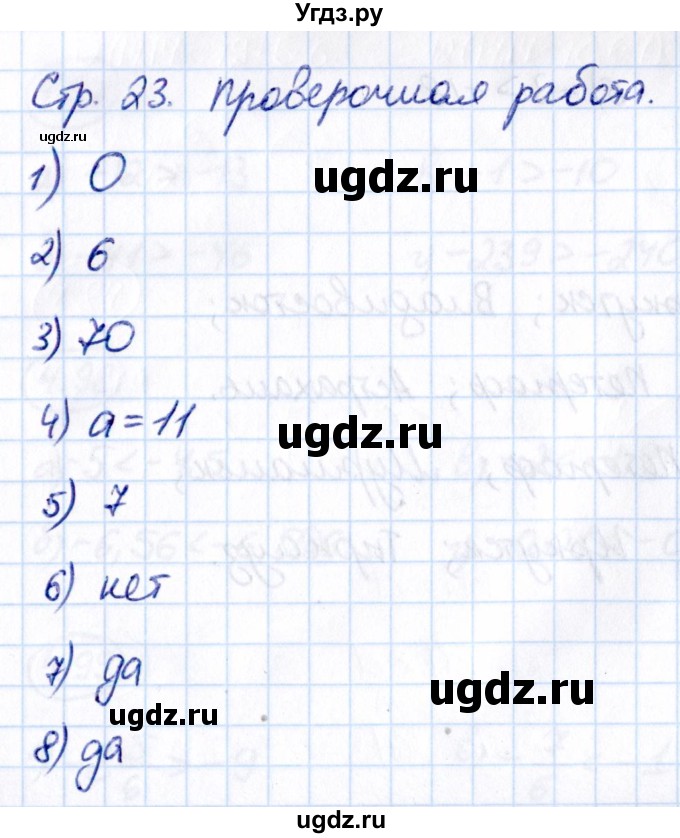 Угдз.ру
Стр. 23. Проверочная работа.
ugdz.ru
1) 0
ugdz.ru
2) 6
3) 70
4) a = 11
ugdz.ru
5) 7
6) нет
7) да
ugdz.ru
ugdz.ru
8) да
ugdz.ru